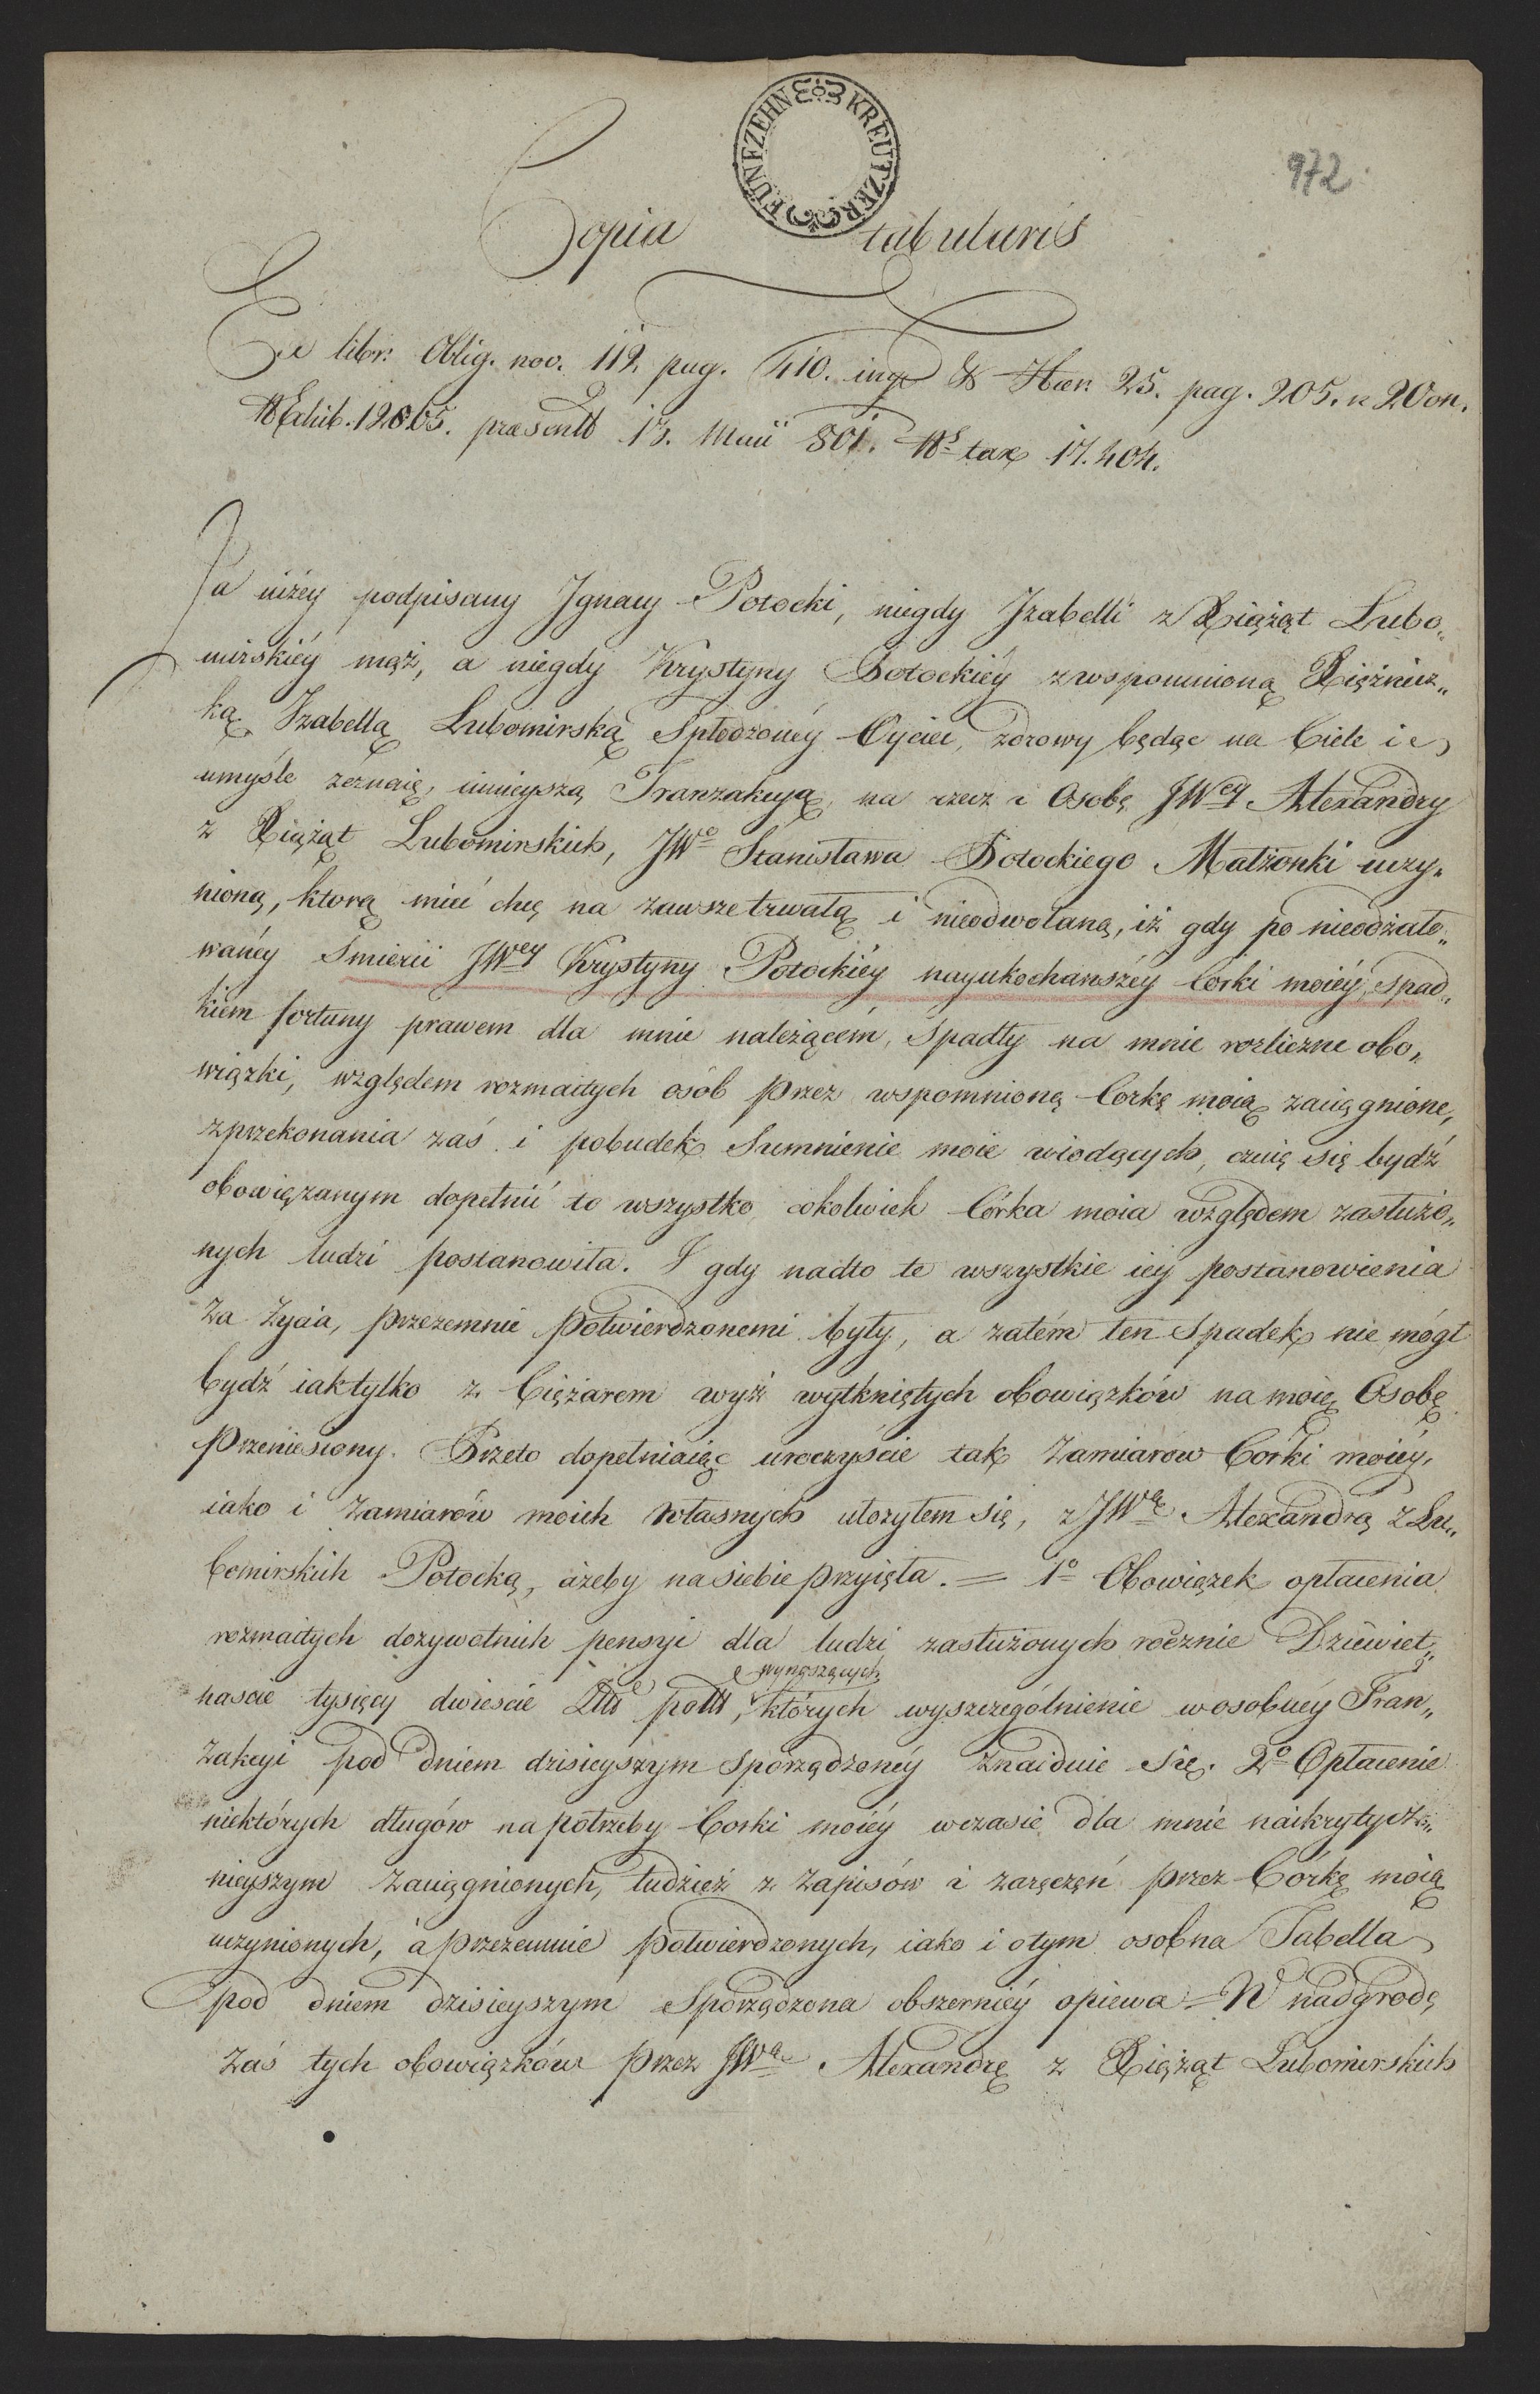 FÜNFZEHN KREUTZER
972.
Copia tabularis
Ex libr. Oblig. nov. 112 pag. 410. ing & Haer. 25. pag. 205. n 20 on.
NExhib. 12865. praesentt 13. Maii 801. Nº tax 17.404.
Ja niżey podpisany Jgnacy Potocki, niegdy Jzabelli z Xiążąt Lubo„
mirskiéy mąż, a niegdy Krystyny Potockiéy zwspomnioną Xiężnicz„
ką Jzabellą Lubomirską Spłodzonéy Oyciec, zdrowy będąc na Ciele i
umyśle zeznaię, ninieyszą Tranzakcyą, na rzecz i Osobę JWey Alexandry
z Xiążąt Lubomirskich, JWo Stanisława Potockiego Małżonki uczy„
nioną, ktorą mieć chcę na zawsze trwałą i nieodwołaną, iż gdy po nieodżało„
wanéy Smierci JWey Krystyny Potockiéy nayukochanszéy Corki moiéy, spad„
kiem fortuny prawem dla mnie należącém, Spadły na mnie rozliczne obo„
wiązki, względem rozmaitych osób przez wspomnioną Corkę moią zaciągnione,
zprzekonania zaś i pobudek Sumnienie moie wiodących, czuię się bydź
obowiązanym dopełnić to wszystko cokolwiek Córka moia względem zasłużo„
nych ludzi postanowiła. I gdy nadto te wszystkie iey postanowienia
za życia, przezemnie potwierdzonemi były, a zatém ten Spadek nie mógł
bydź iak tylko z Ciężarem wyż wytkniętych obowiązków na moię Osobę
przeniesiony. Przeto dopełniaiąc uroczyście tak Zamiarów Córki moiéy,
iako i Zamiarów moich własnych ułożyłem się, z JWą Alexandrą z Lu„
bomirskich Potocką, ażeby na siebie przyięła. = 1º Obowiązek opłacenia
rozmaitych dożywotnich pensyi dla ludzi zasłużonych rocznie Dziewięt„
naście tysięcy dwieście Złł poll, wynoszących których wyszczególnienie w osobnéy Tran„
zakcyi pod dniem dzisieyszym Sporządzonéy znaiduie się. 2º Opłacenie
niektórych długów na potrzeby Corki moiéy w czasie dla mnie naikrytycz„
nieyszym zaciągnionych, tudzież z Zapisów i zaręczeń przez Córkę moią
uczynionych, a przezemnie potwierdzonych, iako i o tym osobna Tabella
pod dniem dzisieyszym Sporządzona obszerniéy opiewa = W nadgrodę
zaś tych obowiązków przez JWą Alexandrę z Xiążąt Lubomirskich